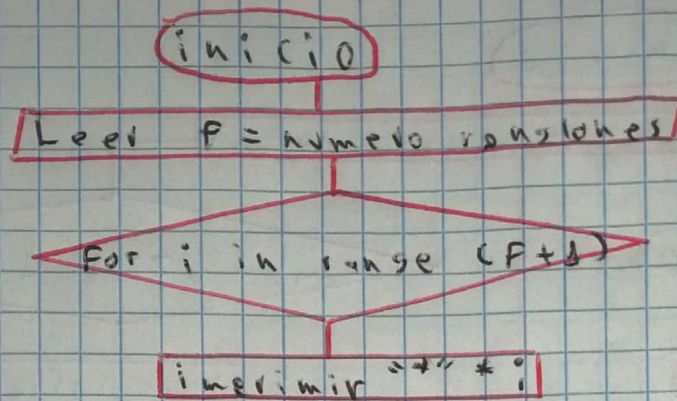 inicio
Leer F = numero renglones
For i in range (F+1)
imprimir "*" * i